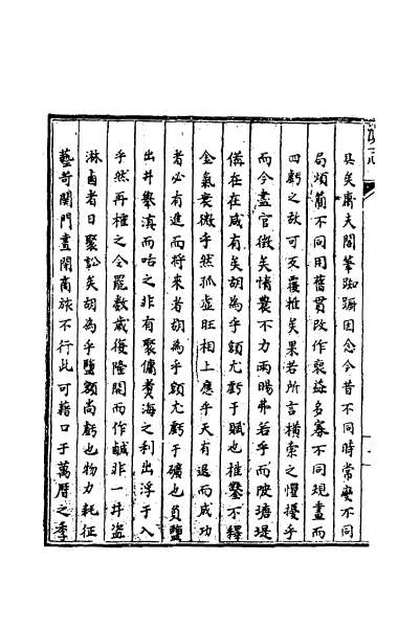 具矣肅夫閣筆踟蹰因念今昔不同時常變不同
局煩簡不同用舊貫改作裒益名寡不同規畫而
四虧之故可反覆惟矣果若所言橫索之懼擾乎
而今盡官徵矣情農不力兩暘弗若乎而陂塘堤
僃在在咸有矣胡為乎額尤虧于賦也榷鑿不釋
金氣衰微乎然孤虛旺相上應乎天有退而成功
者必有進而將來者胡為乎額尤虧于礦也負鹽
出井衆滇而咕之非有聚傭煑海之利出浮于入
乎然再榷之令罷數歲復隆開而作鹹非一井盜
淋鹵者日聚訟矣胡為乎鹽額尚虧也物力耗征
藝苛関門晝閉商旅不行此可藉口于萬曆之季